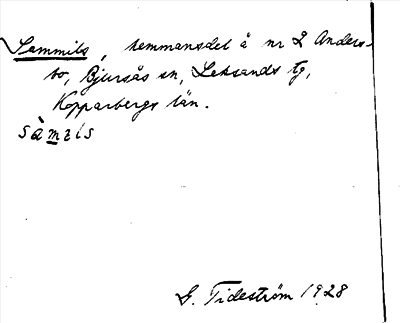 Sammils, hemmansdel å nr 2 Anders-
bo, Bjursås sn, Leksands tg,
Kopparbergs län.
sàmils
G. Tideström 1928